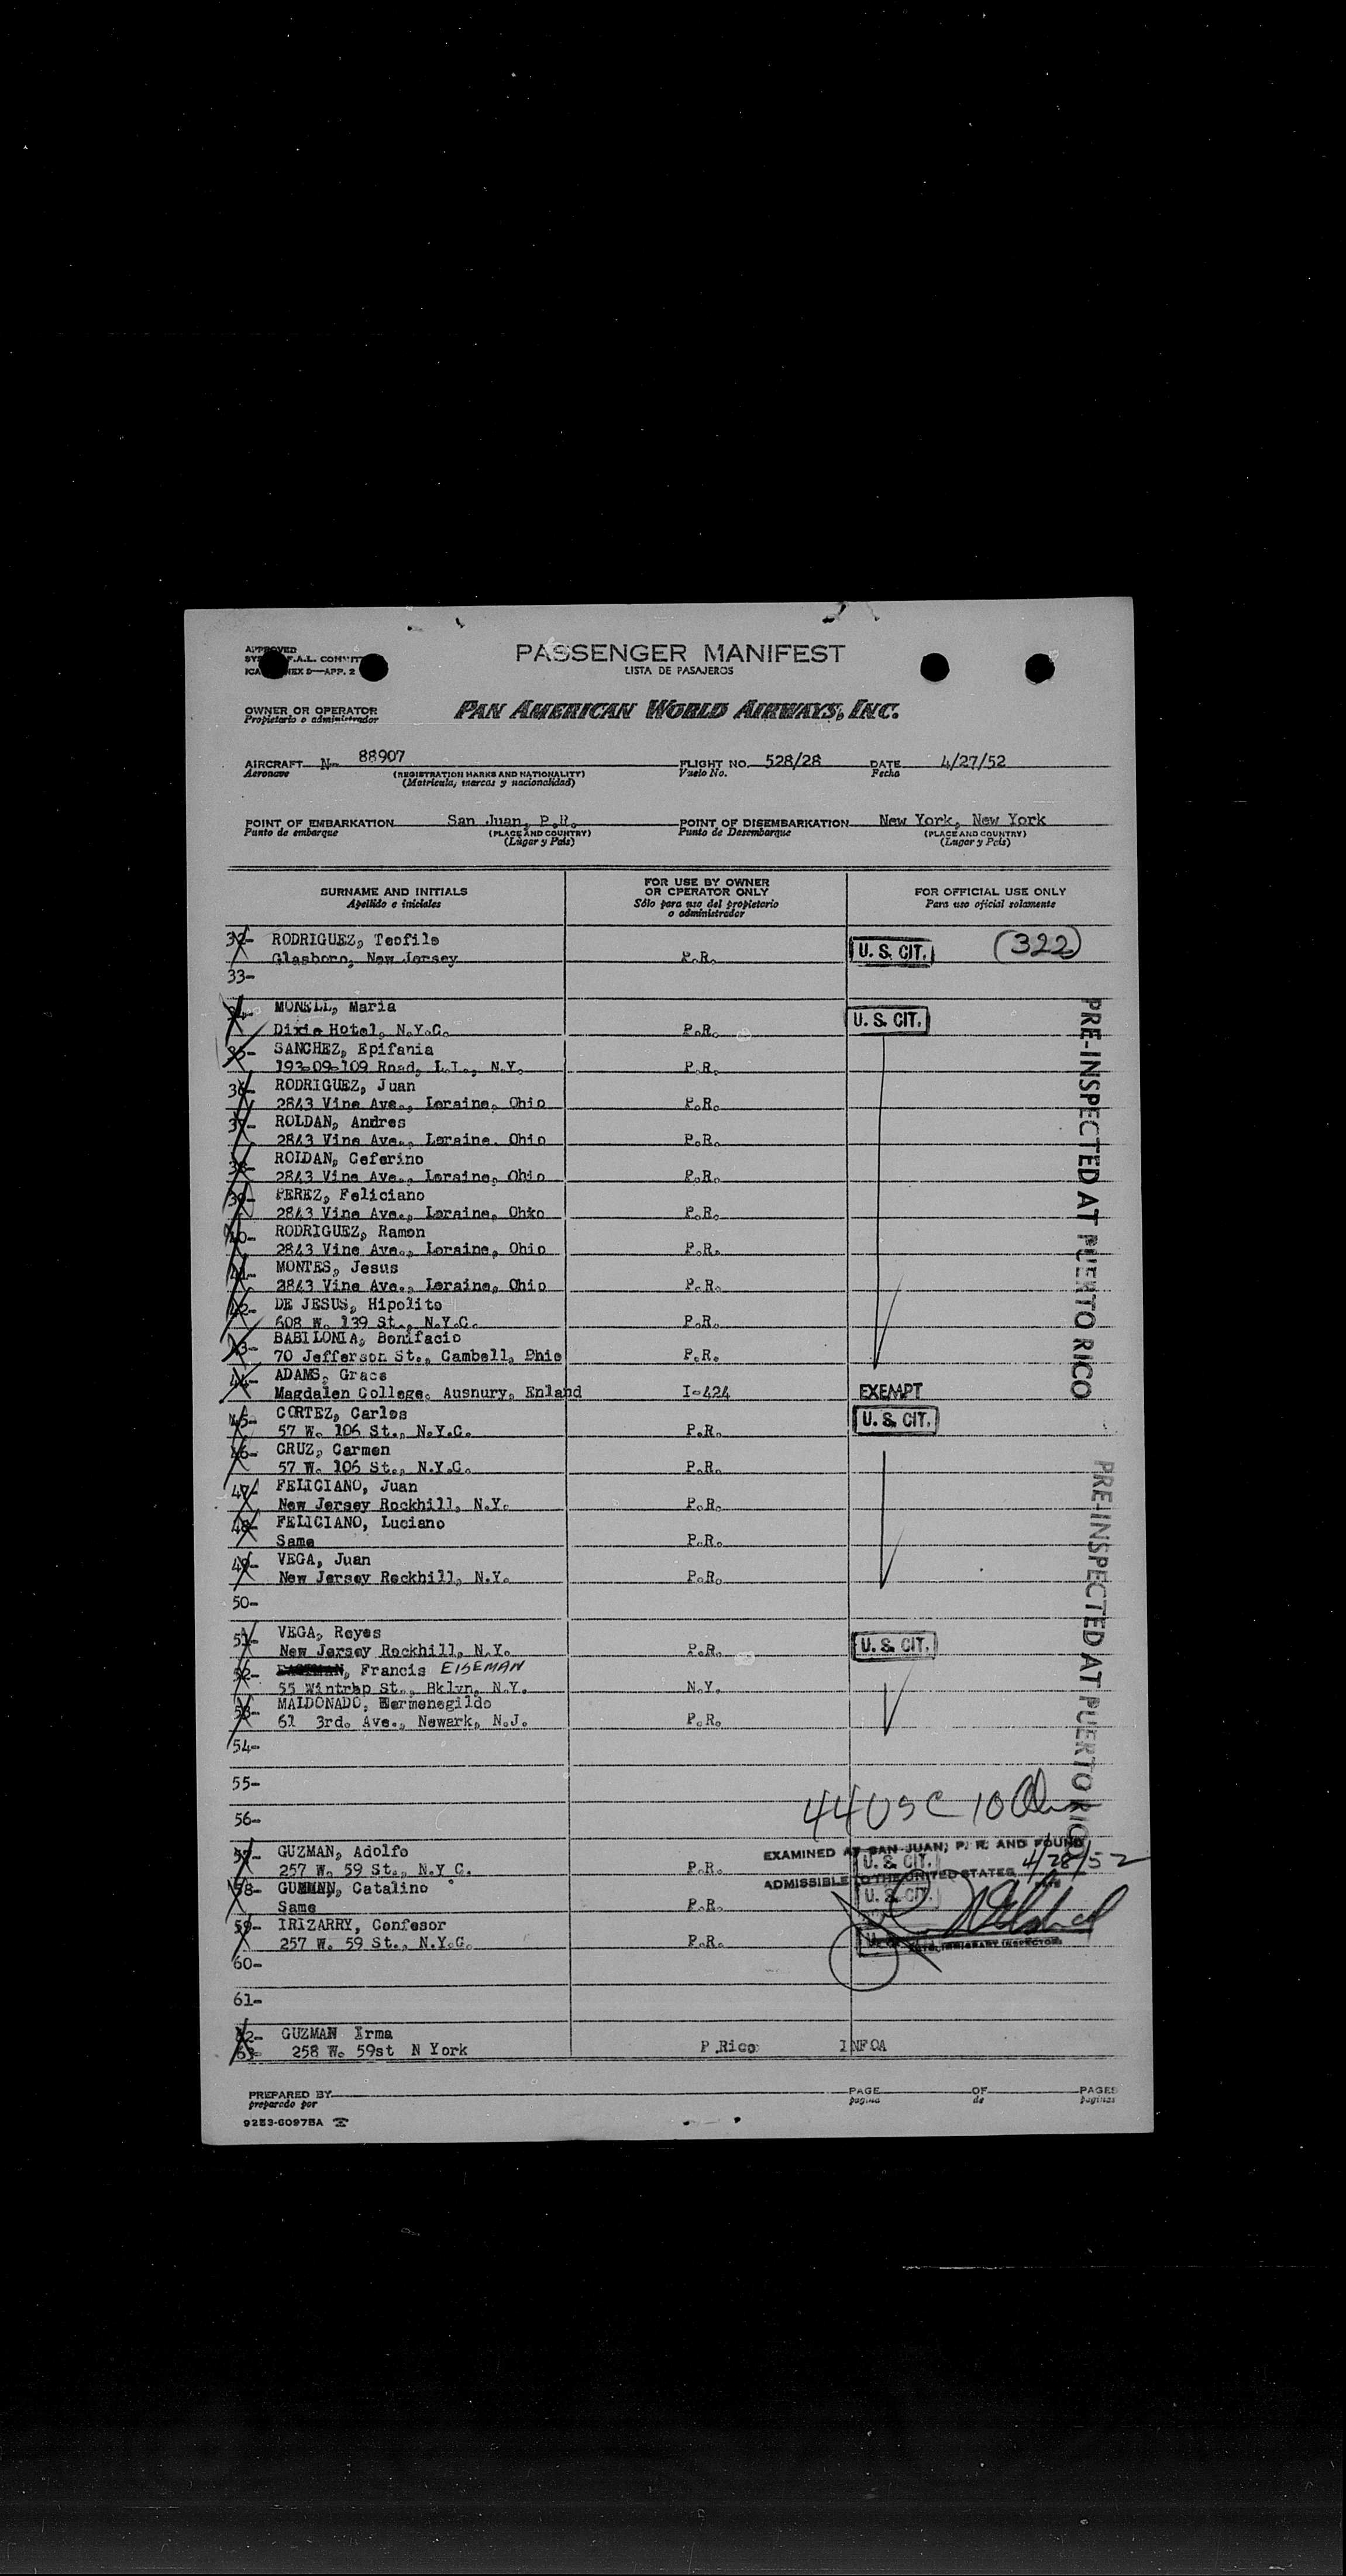 APPROVED
F.A.L.
D—APP. 2
PASSENGER MANIFEST
LISTA DE PASAJEROS
OWNER OR OPERATOR
Propietario o administrador
PAN AMERICAN WORLD AIRWAYS, INC.
AIRCRAFT N- 88907 FLIGHT NO. 528/28 DATE 4/27/52
Aeronave (REGISTRATION MARKS AND NATIONALITY) Vuelo No. Fecha
(Matricula, marcas y nacionalidad)
POINT OF EMBARKATION San Juan, P.R. POINT OF DISEMBARKATION New York, New York
Punto de embarque (PLACE AND COUNTRY) Punto de Desembarque (PLACE AND COUNTRY)
(Lugar y País) (Lugar y País)
SURNAME AND INITIALS FOR USE BY OWNER OR OPERATOR ONLY FOR OFFICIAL USE ONLY
Apellido e iniciales Sólo para uso del propietario o administrador Para uso oficial solamente
32- RODRIGUEZ, Teofilo (322)
Glasboro, New Jersey P.R. U. S. CIT.
33-
34- MONELL, Maria U. S. CIT.
Dixie Hotel, N.Y.C. P.R.
35- SANCHEZ, Epifania
193-09-109 Road, L.I., N.Y. P.R.
36- RODRIGUEZ, Juan
2843 Vine Ave., Loraine, Ohio P.R.
37- ROLDAN, Andres
2843 Vine Ave., Loraine. Ohio P.R.
38- ROLDAN, Ceferino
2843 Vine Ave., Loraine, Ohio P.R.
39- PEREZ, Feliciano
2843 Vine Ave., Loraine, Ohio P.R.
40- RODRIGUEZ, Ramon
2843 Vine Ave., Loraine, Ohio P.R.
41- MONTES, Jesus
2843 Vine Ave., Loraine, Ohio P.R.
42- DE JESUS, Hipolito
608 W. 139 St., N.Y.C. P.R.
43- BABILONIA, Bonifacio
70 Jefferson St., Cambell, Ohio P.R.
44- ADAMS, Grace
Magdalen College, Ausnury, Enland I-424 EXEMPT
45- CORTEZ, Carlos U. S. CIT.
57 W. 106 St., N.Y.C. P.R.
46- CRUZ, Carmen
57 W. 106 St., N.Y.C. P.R.
47- FELICIANO, Juan
New Jersey Rockhill, N.Y. P.R.
48- FELICIANO, Luciano
Same P.R.
49- VEGA, Juan
New Jersey Rockhill, N.Y. P.R.
50-
51- VEGA, Reyes
New Jersey Rockhill, N.Y. P.R. U. S. CIT.
52- , Francis EISEMAN
55 Wintrhp St., Bklyn, N.Y. N.Y.
53- MALDONADO, Hermenegildo
61 3rd. Ave., Newark, N.J. P.R.
54-
55-
56-
44 USC 10
57- GUZMAN, Adolfo EXAMINED AT SAN JUAN, P. R. AND FOUND
257 W. 59 St., N.Y C. P.R. U. S. CIT. 4/28/52
58- GUZMAN, Catalino ADMISSIBLE TO THE UNITED STATES
Same P.R. U. S. CIT.
59- IRIZARRY, Confesor
257 W. 59 St., N.Y.C. P.R. IMMIGRANT INSPECTOR
60-
61-
62- GUZMAN Irma
63- 258 W. 59st N York P Rico INFOA
PRE-INSPECTED AT PUERTO RICO
PRE-INSPECTED AT PUERTO RICO
PREPARED BY PAGE OF PAGES
preparado por página de páginas
9253-60975A